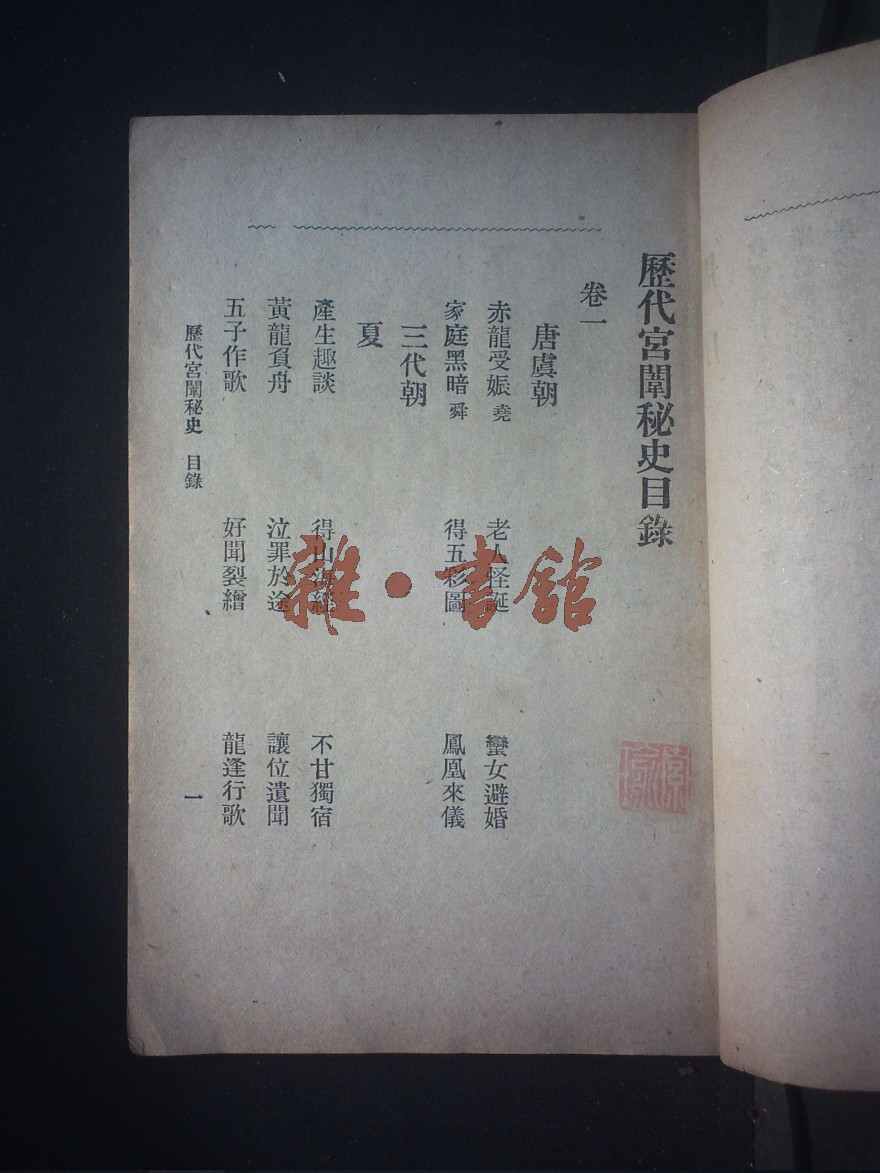 歷代宮闈秘史目錄
卷一
唐虞朝
赤龍受娠 堯 老人怪誕 蠻女避婚
家庭黑暗 舜 得五彩圖 鳳凰來儀
三代朝
夏
產生趣談 得山海經 不甘獨宿
黃龍負舟 泣罪於途 讓位遺聞
五子作歌 好聞裂繒 龍逢行歌
歷代宮闈秘史 目錄 一
雜·書館